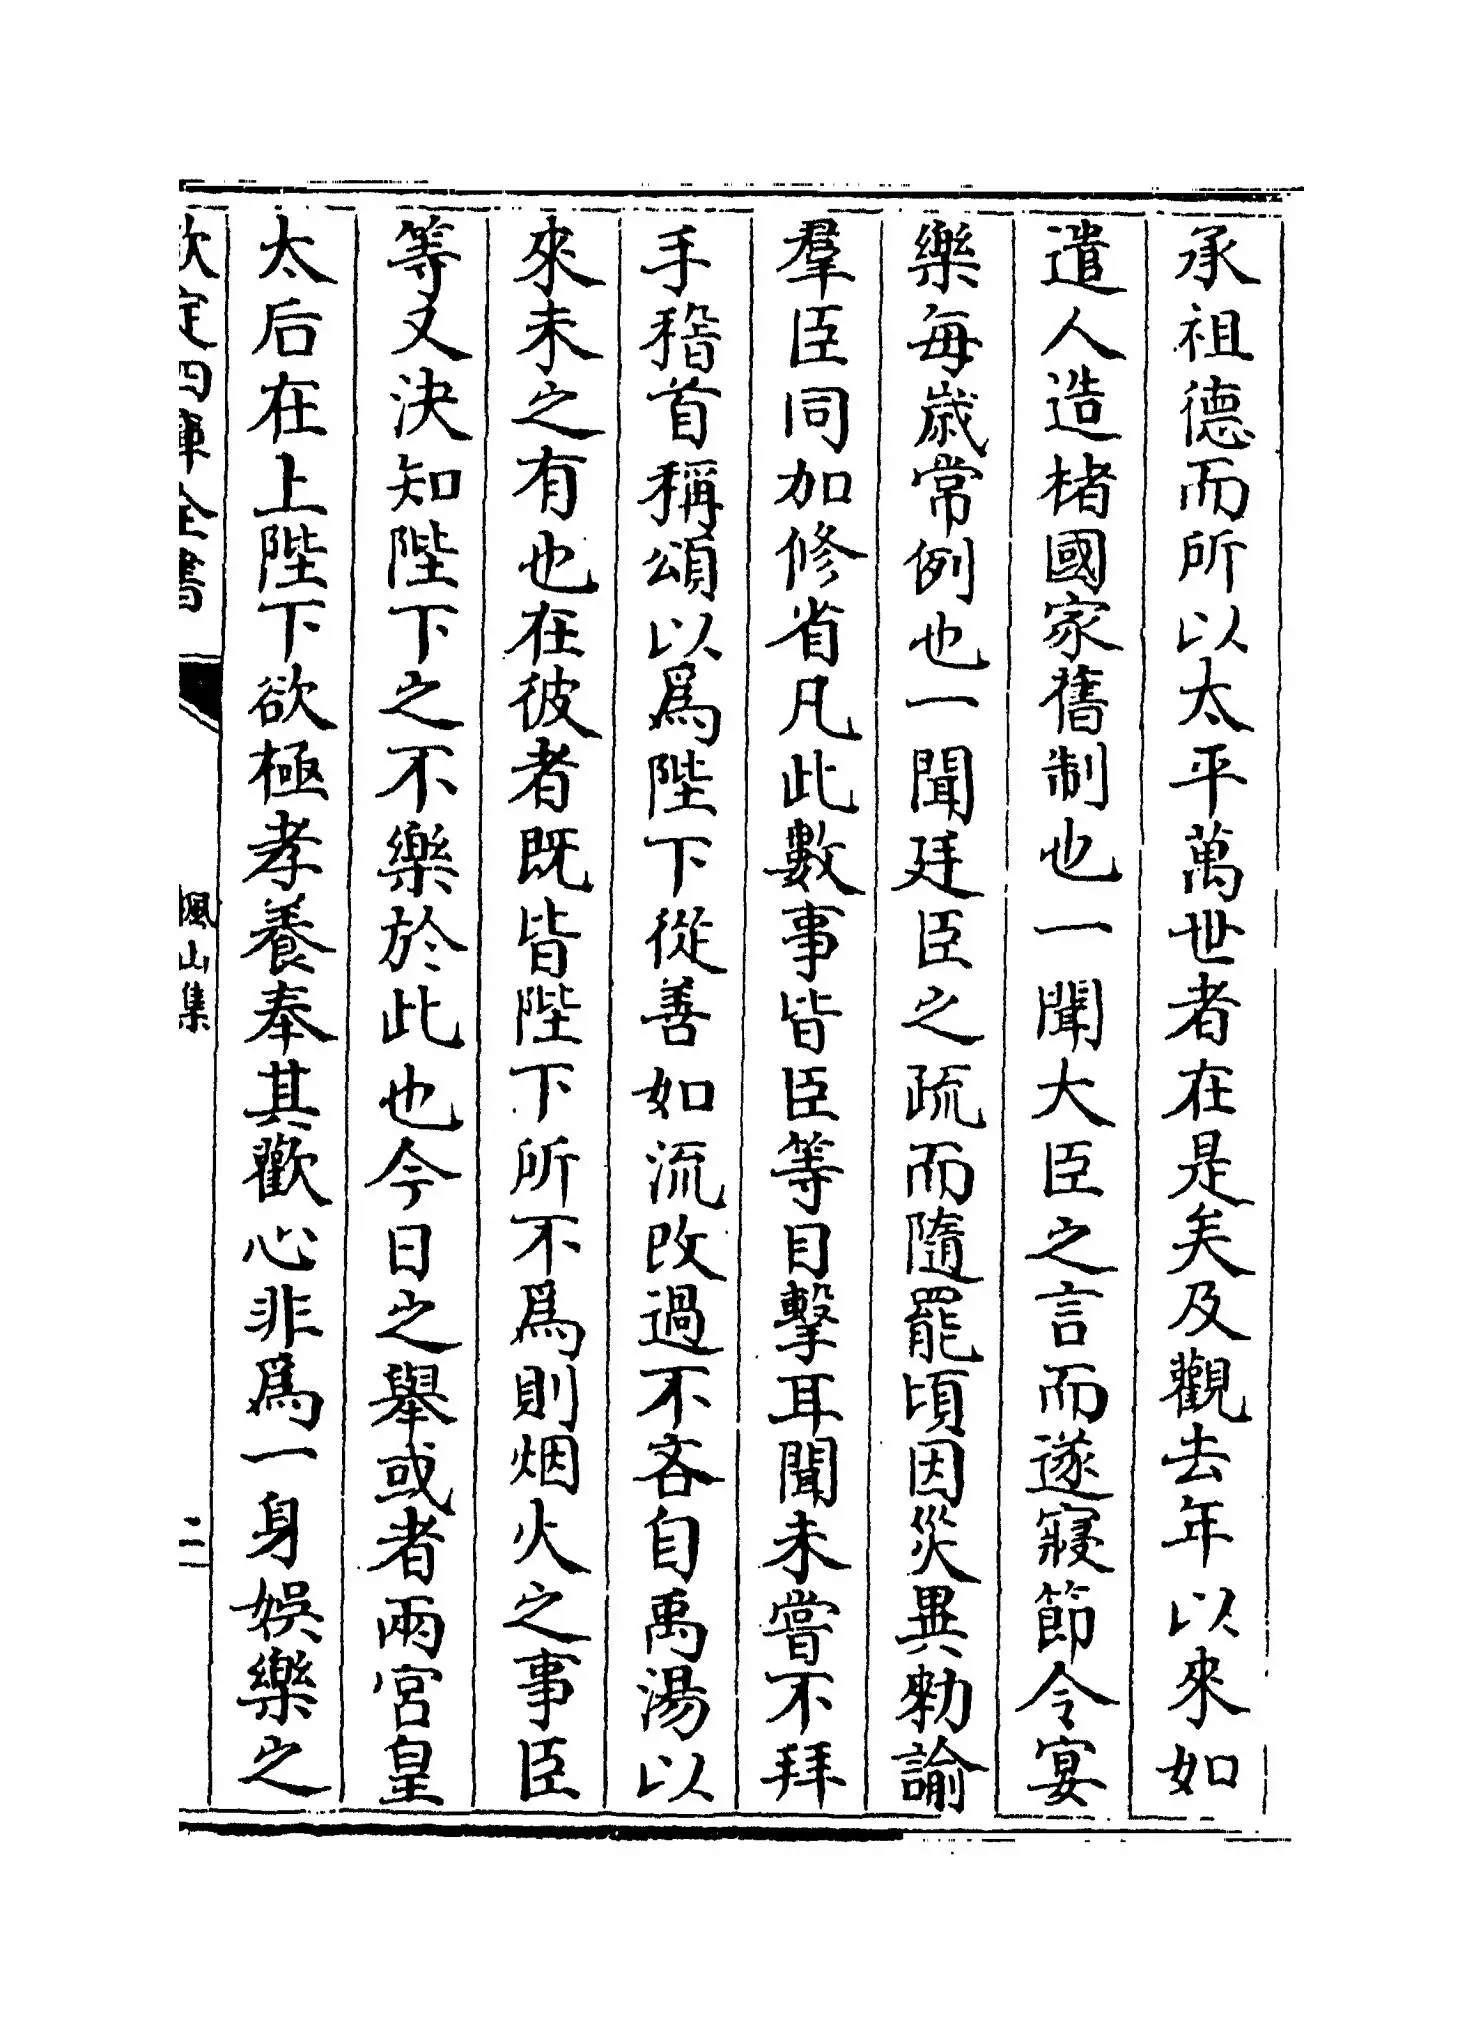 承祖德而所以太平萬世者在是矣及觀去年以來如
遣人造楮國家舊制也一聞大臣之言而遂寢節令宴
樂每歲常例也一聞廷臣之疏而隨罷頃因災異勅諭
羣臣同加修省凡此數事皆臣等目擊耳聞未嘗不拜
手稽首稱頌以為陛下從善如流改過不吝自禹湯以
來未之有也在彼者既皆陛下所不為則烟火之事臣
等又決知陛下之不樂於此也今日之舉或者兩宮皇
太后在上陛下欲極孝養奉其歡心非為一身娛樂之
欽定四庫全書 楓山集 二